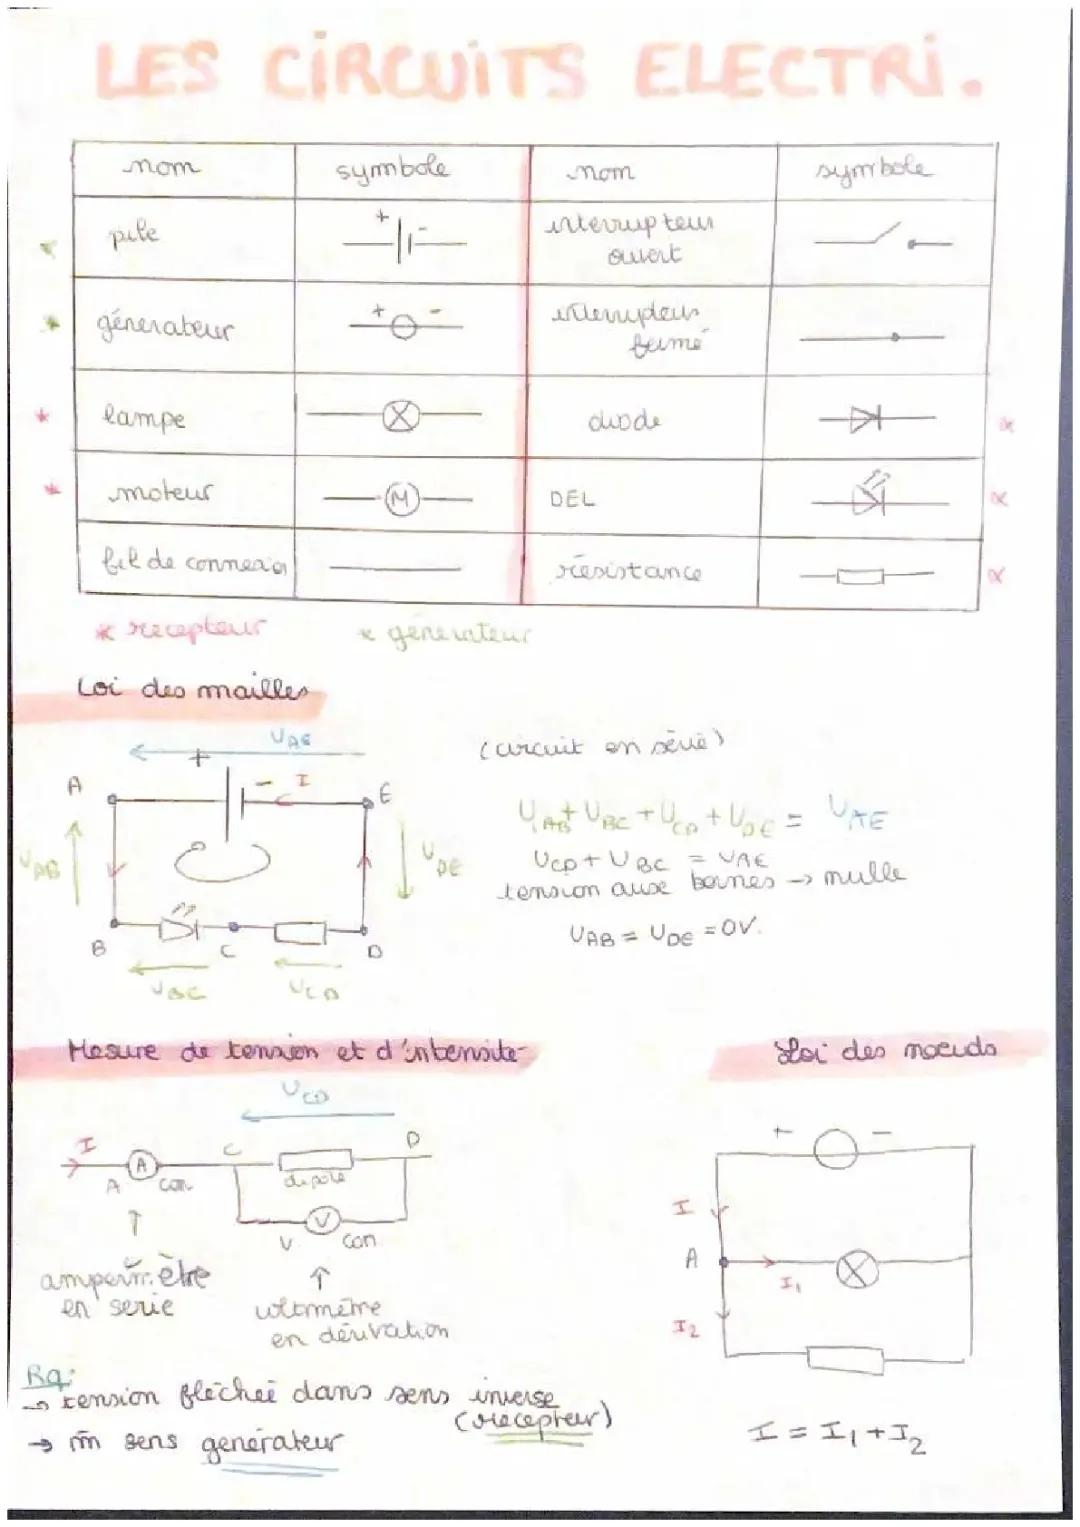 LES CIRCUITS ELECTRI.
nom symbole nom symbole
pile + - interrupteur
ouvert
générateur + - interrupteur
fermé
lampe diode
moteur M DEL
fil de connexion résistance
* recepteur * generateur
Loi des mailles
UAE
(circuit en série)
+ - I
A E
UAB + UBC + UCD + UDE = UAE
UAB UDE
UCD + UBC = UAE
tension aux bornes → nulle
UAB = UDE = 0V.
B C D
UBC UCD
Mesure de tension et d'intensite
Loi des noeuds
UCD
I A C D
A com dipole
V
V com
ampèrmètre
en serie
voltmètre
en dérivation
+ -
I
A
I1
I2
Rq:
→ tension flêcheé dans sens inverse
(récepteur)
→ m̂ sens generateur
I = I1 + I2